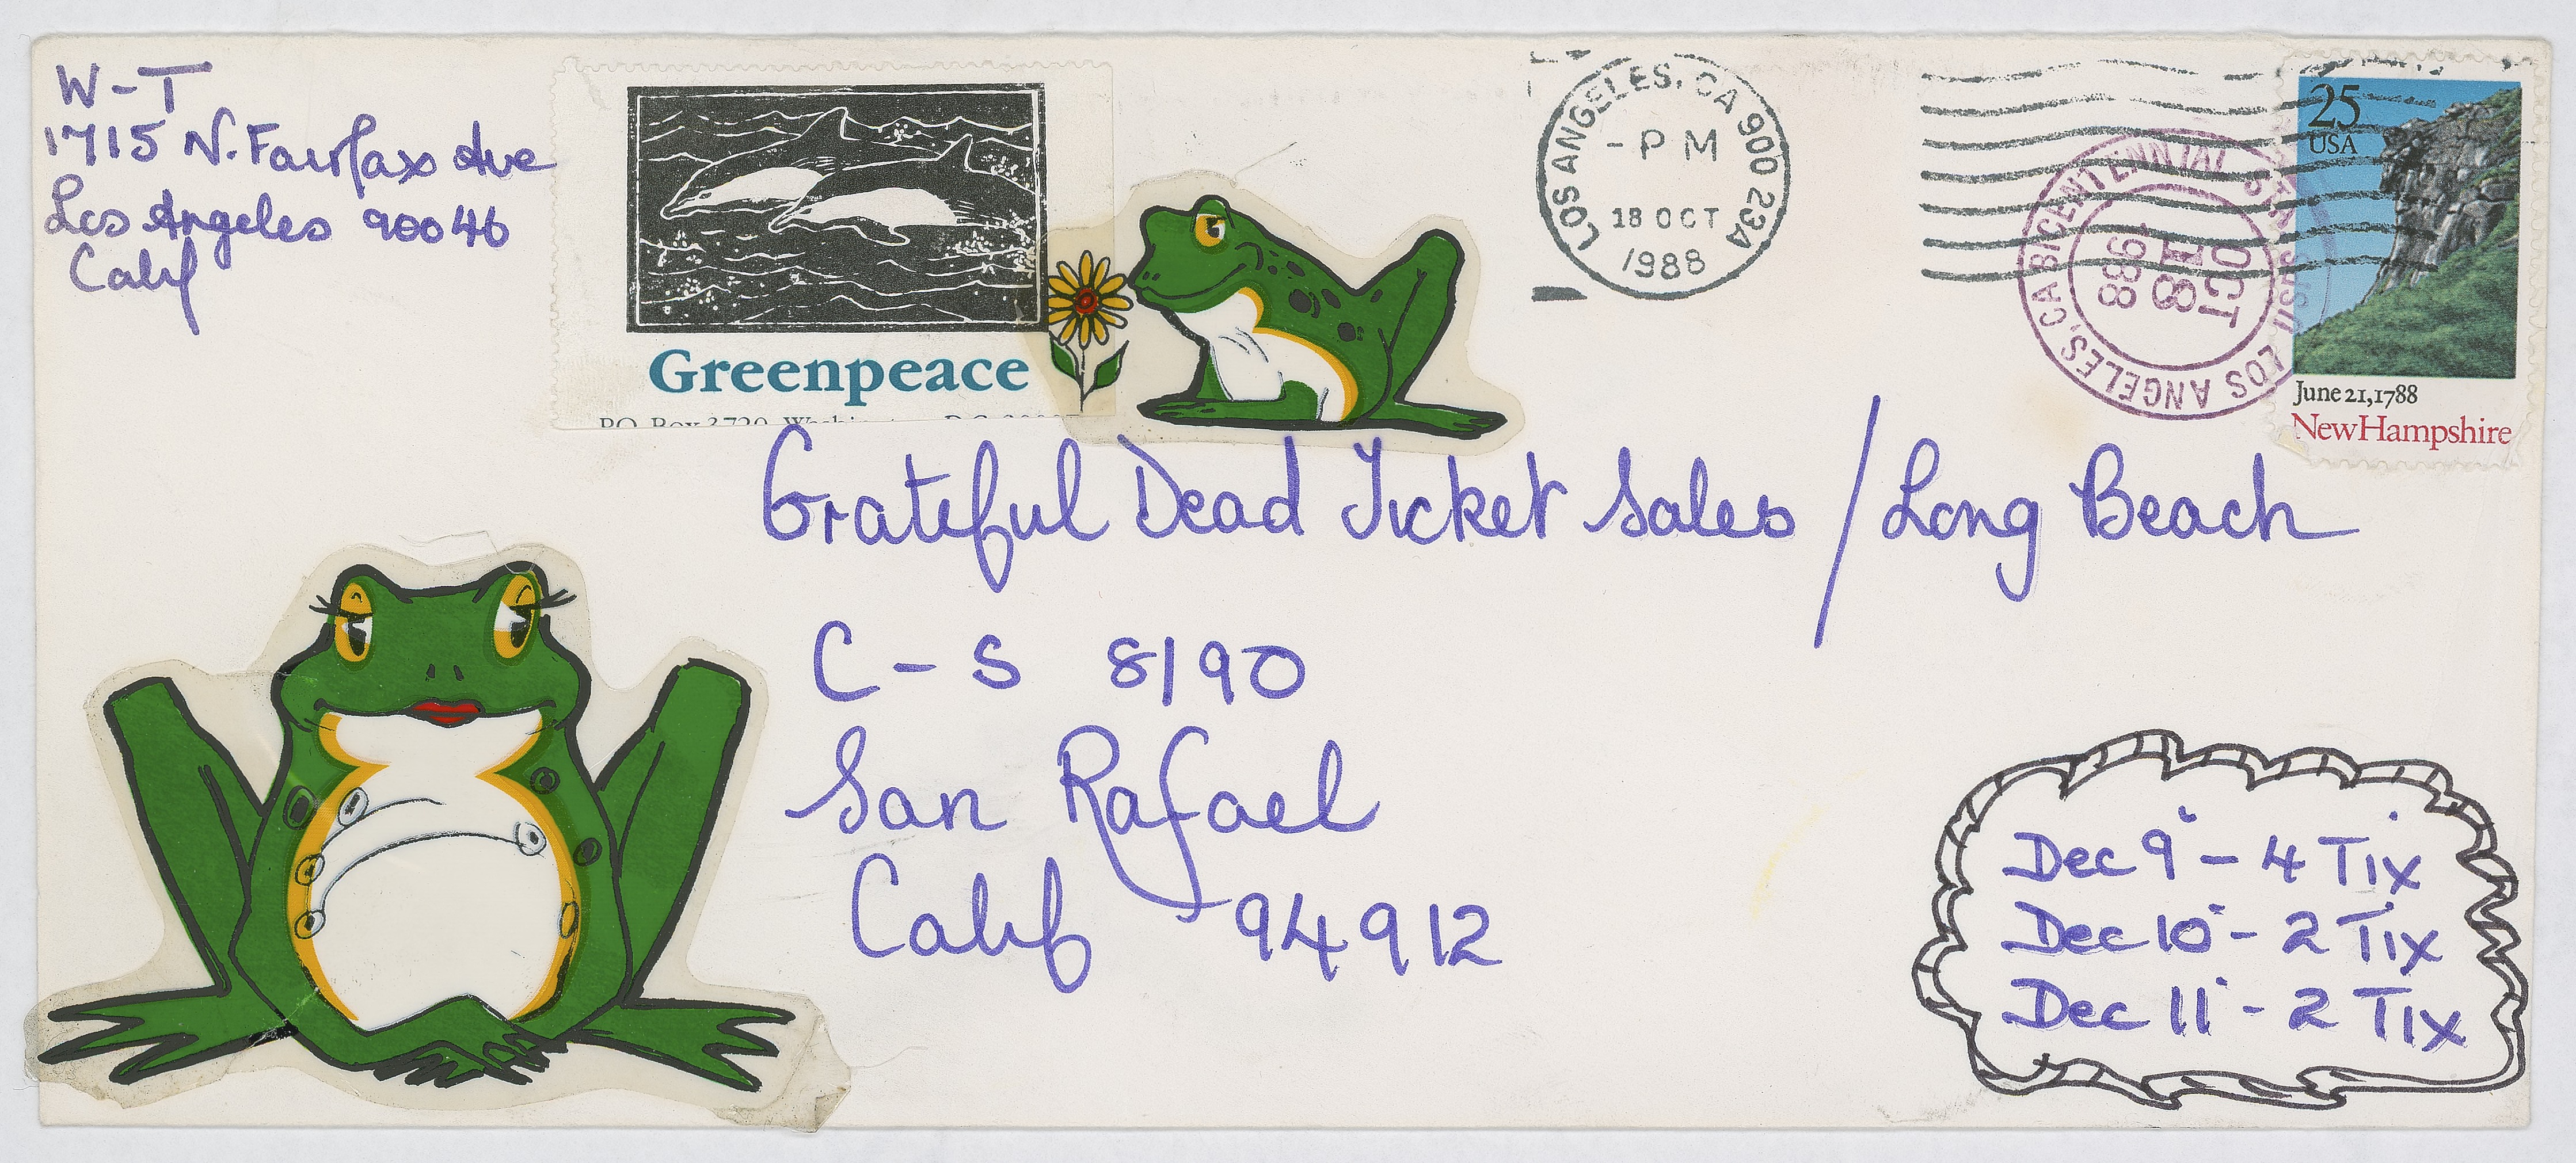 W-T
1715 N. Fairfax Ave
Los Angeles 90046
Calif
Greenpeace
P.O. Box 3720, Washington, D.C. 20007
LOS ANGELES, CA 900 234
- PM
18 OCT
1988
BICENTENNIAL STATION USPO
OCT
18
1988
LOS ANGELES, CA
25
USA
June 21, 1788
New Hampshire
Grateful Dead Ticket Sales / Long Beach
C-S 8190
San Rafael
Calif 94912
Dec 9 - 4 Tix
Dec 10 - 2 Tix
Dec 11 - 2 Tix